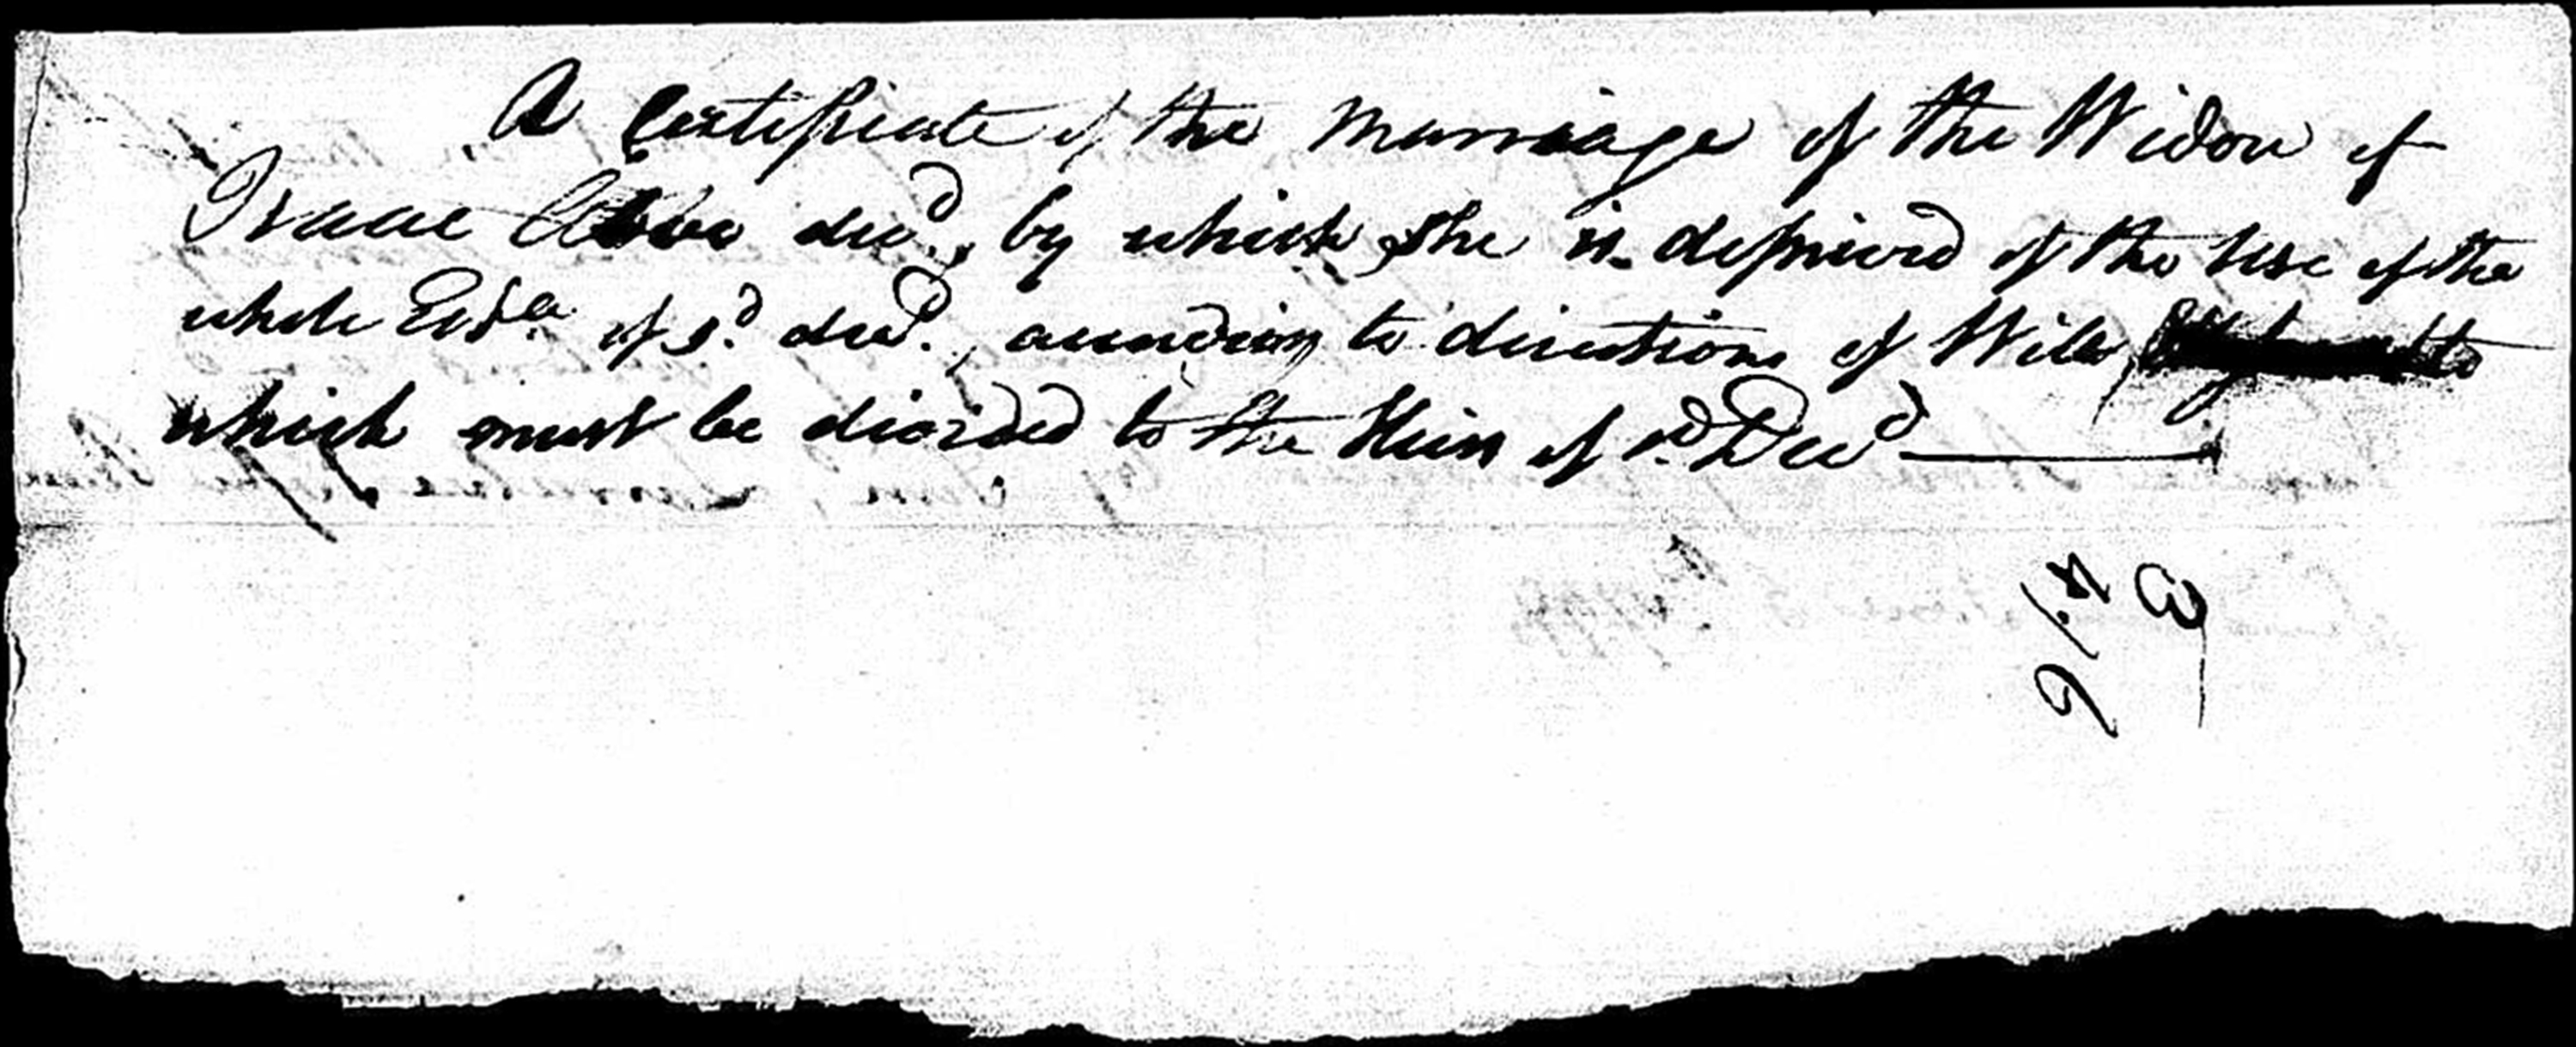 A Certificate of the Marriage of the Widow of
Isaac decd, by which she is deprived of the Use of the
whole Esta of sd. decd., according to directions of Will
which must be divided to the Heirs of sd. Decd